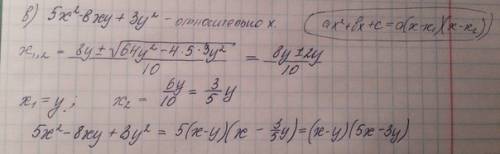 в) 5x² - 8xy + 3y² - относительно x.
ax² + bx + c = a(x - x₁)(x - x₂)
x₁,₂ = (8y ± √(64y² - 4·5·3y²))/10 = (8y ± 2y)/10
x₁ = y; x₂ = 6y/10 = 3/5 y
5x² - 8xy + 3y² = 5(x - y)(x - 3/5 y) = (x - y)(5x - 3y)